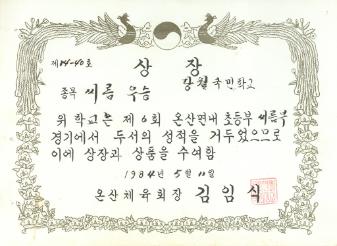 제 14-40호
상 장
당월국민학교
종목 씨름 우승
위 학교는 제 6회 온산면내 초등부 씨름부
경기에서 두서의 성적을 거두었으므로
이에 상장과 상품을 수여함
1984년 5월 11일
온산체육회장 김임식